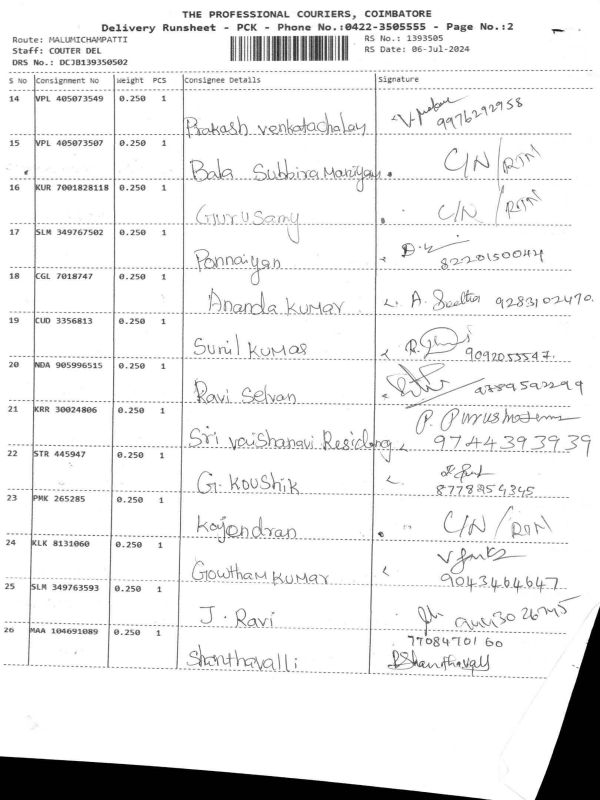 THE PROFESSIONAL COURIERS, COIMBATORE
Delivery Runsheet - PCK - Phone No.:0422-3505555 - Page No.:2
Route: MALUMICHAMPATTI RS No.: 1393505
Staff: COUTER DEL RS Date: 06-Jul-2024
DRS No.: DCJB139350502
S No Consignment No Weight PCS Consignee Details Signature
14 VPL 405073549 0.250 1
Prakash venkatachalay 9976292958
15 VPL 405073507 0.250 1
Bala Subbiramaniyan. C/N/RTN
16 KUR 7001828118 0.250 1
Gurusamy C/N/RTN
17 SLM 349767502 0.250 1
Ponnaiyan 8220150044
18 CGL 7018747 0.250 1
Ananda Kumar A. Seetha 9283102470.
19 CUD 3356813 0.250 1
Sunil Kumar 9092055547.
20 NDA 905996515 0.250 1
Ravi Selvan 9789592299
21 KRR 30024806 0.250 1
Sri vaishanavi 9744393939
22 STR 445947 0.250 1
G. Koushik 8778254345
23 PMK 265285 0.250 1
Kojendran C/N/RTN
24 KLK 8131060 0.250 1
Gowtham Kumar 9043464647
25 SLM 349763593 0.250 1
J. Ravi
26 MAA 104691089 0.250 1 7708470160
Shanthavalli P Shanthavalli